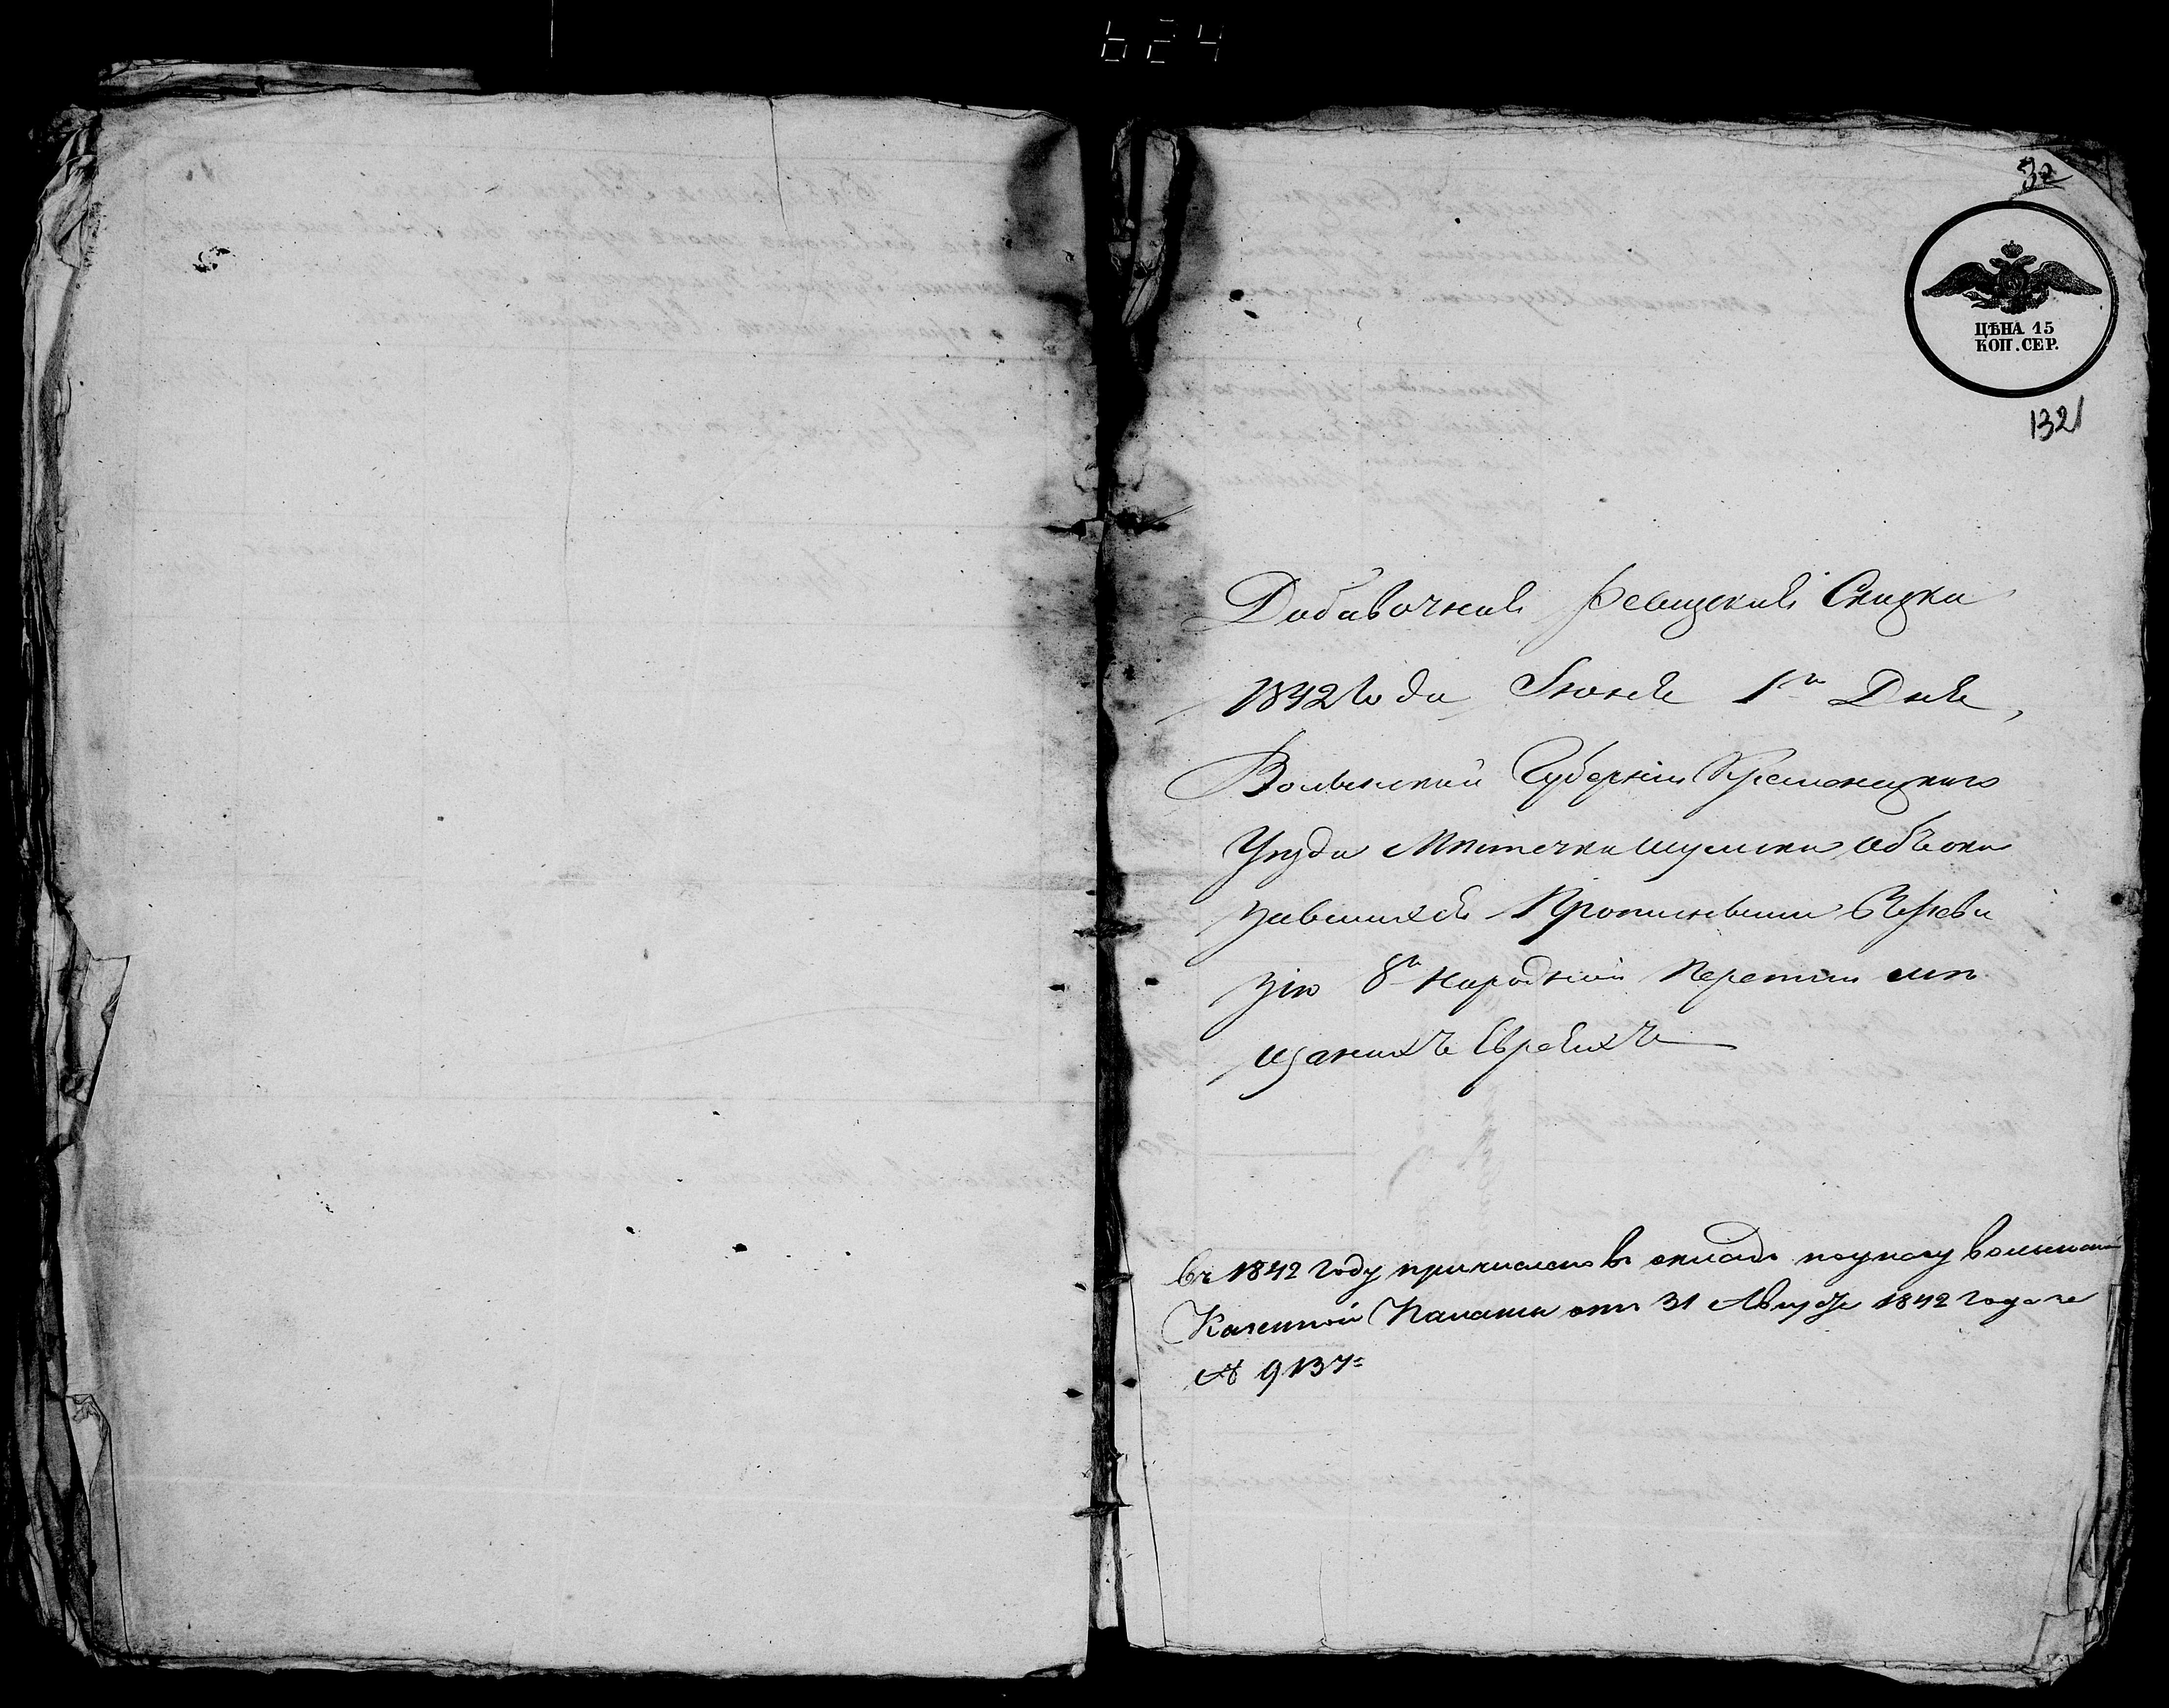 624
32
ЦѢНА 15
КОП. СЕР.
1321
Добавочная Ревизская Сказка
1842 года Июня 1го Дня,
Волынской Губерніи Кременецкаго
Уезда Местечка Шумска объ ока
завшихся Прописными въ Реви
зію 8й народной Переписи ме
щанахъ Евреяхъ
въ 1842 году причислено в окладъ по указу Волынской
Казенной Палаты отъ 31 Августа 1842 года за
№ 9137